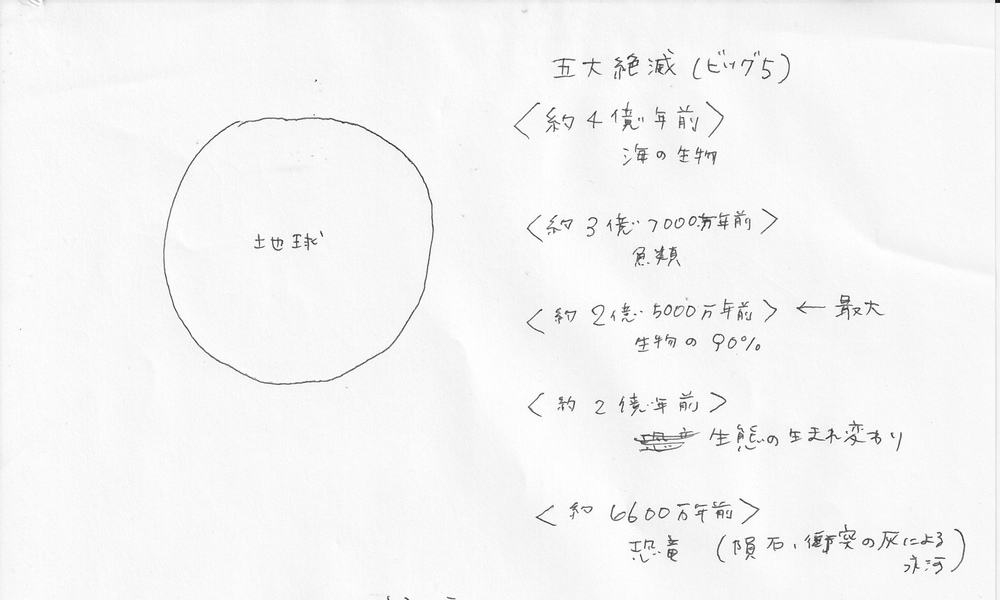 地球
五大絶滅(ビッグ5)
〈約4億年前〉
海の生物
〈約3億7000万年前〉
魚類
〈約2億5000万年前〉 ← 最大
生物の90%
〈約2億年前〉
生態の生まれ変わり
〈約6600万年前〉
恐竜 (隕石、衝突の灰による
氷河)